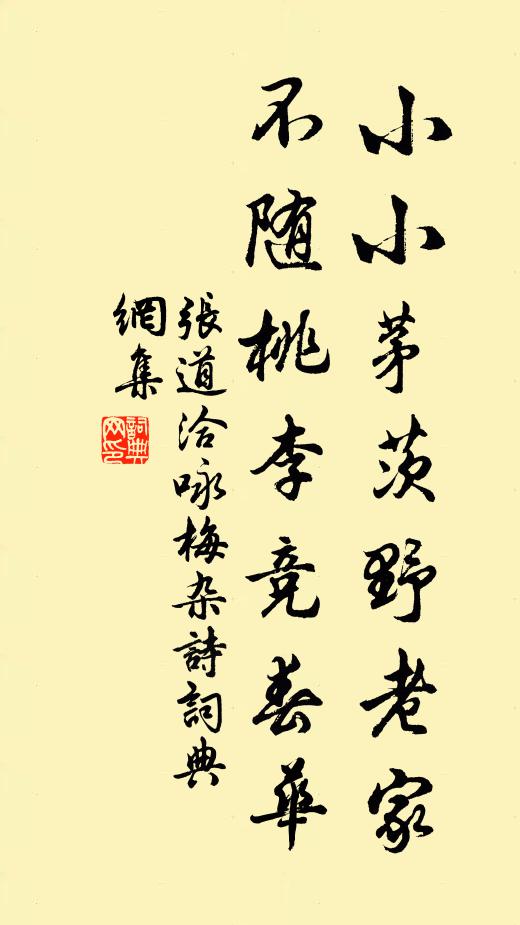 小小茅茨野老家
不随桃李竞春華
張道洽咏梅杂詩詞典
網集
詞典
网印